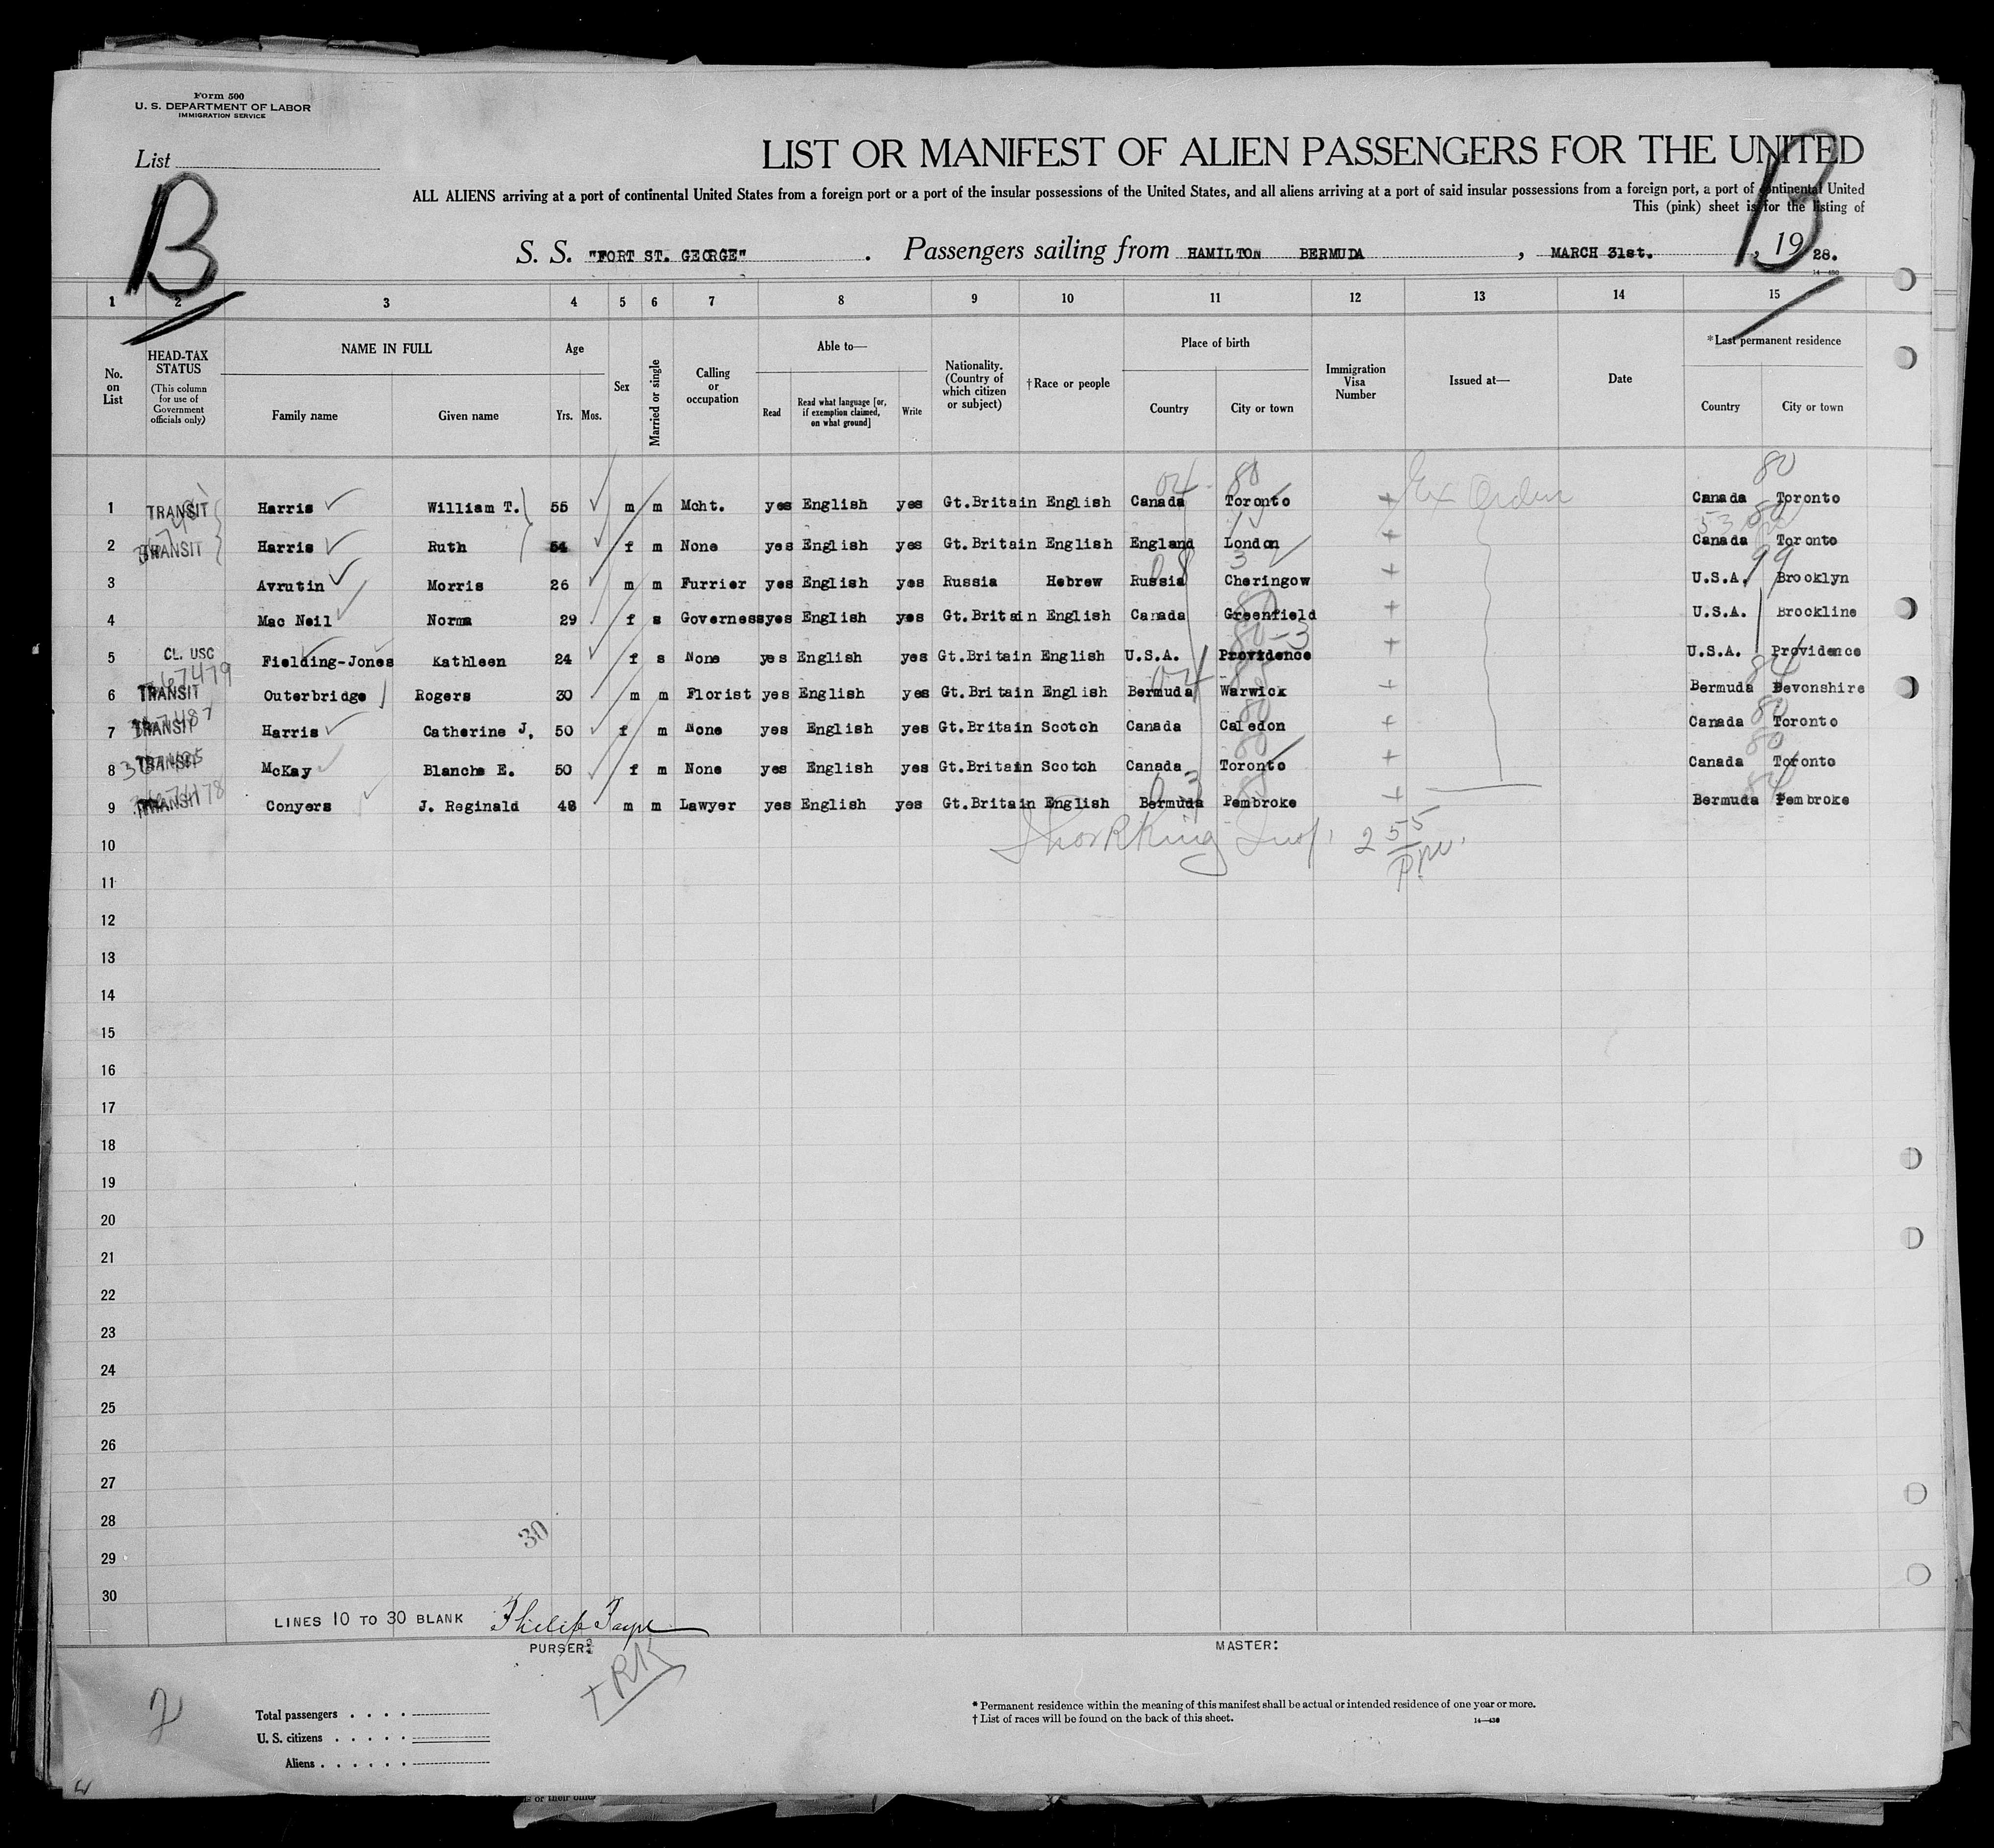 Form 500
U. S. DEPARTMENT OF LABOR
IMMIGRATION SERVICE
List
LIST OR MANIFEST OF ALIEN PASSENGERS FOR THE UNITED
ALL ALIENS arriving at a port of continental United States from a foreign port or a port of the insular possessions of the United States, and all aliens arriving at a port of said insular possessions from a foreign port, a port of continental United
This (pink) sheet is for the listing of
B B
S. S. "FORT ST. GEORGE" . Passengers sailing from HAMILTON BERMUDA , MARCH 31st. , 19 28.
14—430
1 2 3 4 5 6 7 8 9 10 11 12 13 14 15
No. on List
HEAD-TAX STATUS (This column for use of Government officials only)
NAME IN FULL
Family name Given name
Age
Yrs. Mos.
Sex
Married or single
Calling or occupation
Able to—
Read Read what language [or, if exemption claimed, on what ground] Write
Nationality. (Country of which citizen or subject)
†Race or people
Place of birth
Country City or town
Immigration Visa Number
Issued at—
Date
*Last permanent residence
Country City or town
1 TRANSIT Harris William T. 55 m m Mcht. yes English yes Gt.Britain English Canada Toronto Ex Order Canada Toronto
2 TRANSIT Harris Ruth 54 f m None yes English yes Gt.Britain English England London Canada Toronto
3 Avrutin Morris 26 m m Furrier yes English yes Russia Hebrew Russia Cheringow U.S.A. Brooklyn
4 Mac Neil Norma 29 f s Governess yes English yes Gt.Britain English Canada Greenfield U.S.A. Brockline
5 CL. USC Fielding-Jones Kathleen 24 f s None yes English yes Gt.Britain English U.S.A. Providence U.S.A. Providence
6 TRANSIT Outerbridge Rogers 30 m m Florist yes English yes Gt.Britain English Bermuda Warwick Bermuda Devonshire
7 TRANSIT Harris Catherine J. 50 f m None yes English yes Gt.Britain Scotch Canada Caledon Canada Toronto
8 TRANSIT McKay Blanche E. 50 f m None yes English yes Gt.Britain Scotch Canada Toronto Canada Toronto
9 TRANSIT Conyers J. Reginald 48 m m Lawyer yes English yes Gt.Britain English Bermuda Pembroke Bermuda Pembroke
10 2 55 pm.
11
12
13
14
15
16
17
18
19
20
21
22
23
24
25
26
27
28
29
30
30
LINES 10 TO 30 BLANK
PURSER: MASTER:
TRK
2
Total passengers
U. S. citizens
Aliens
* Permanent residence within the meaning of this manifest shall be actual or intended residence of one year or more.
† List of races will be found on the back of this sheet.
14—430